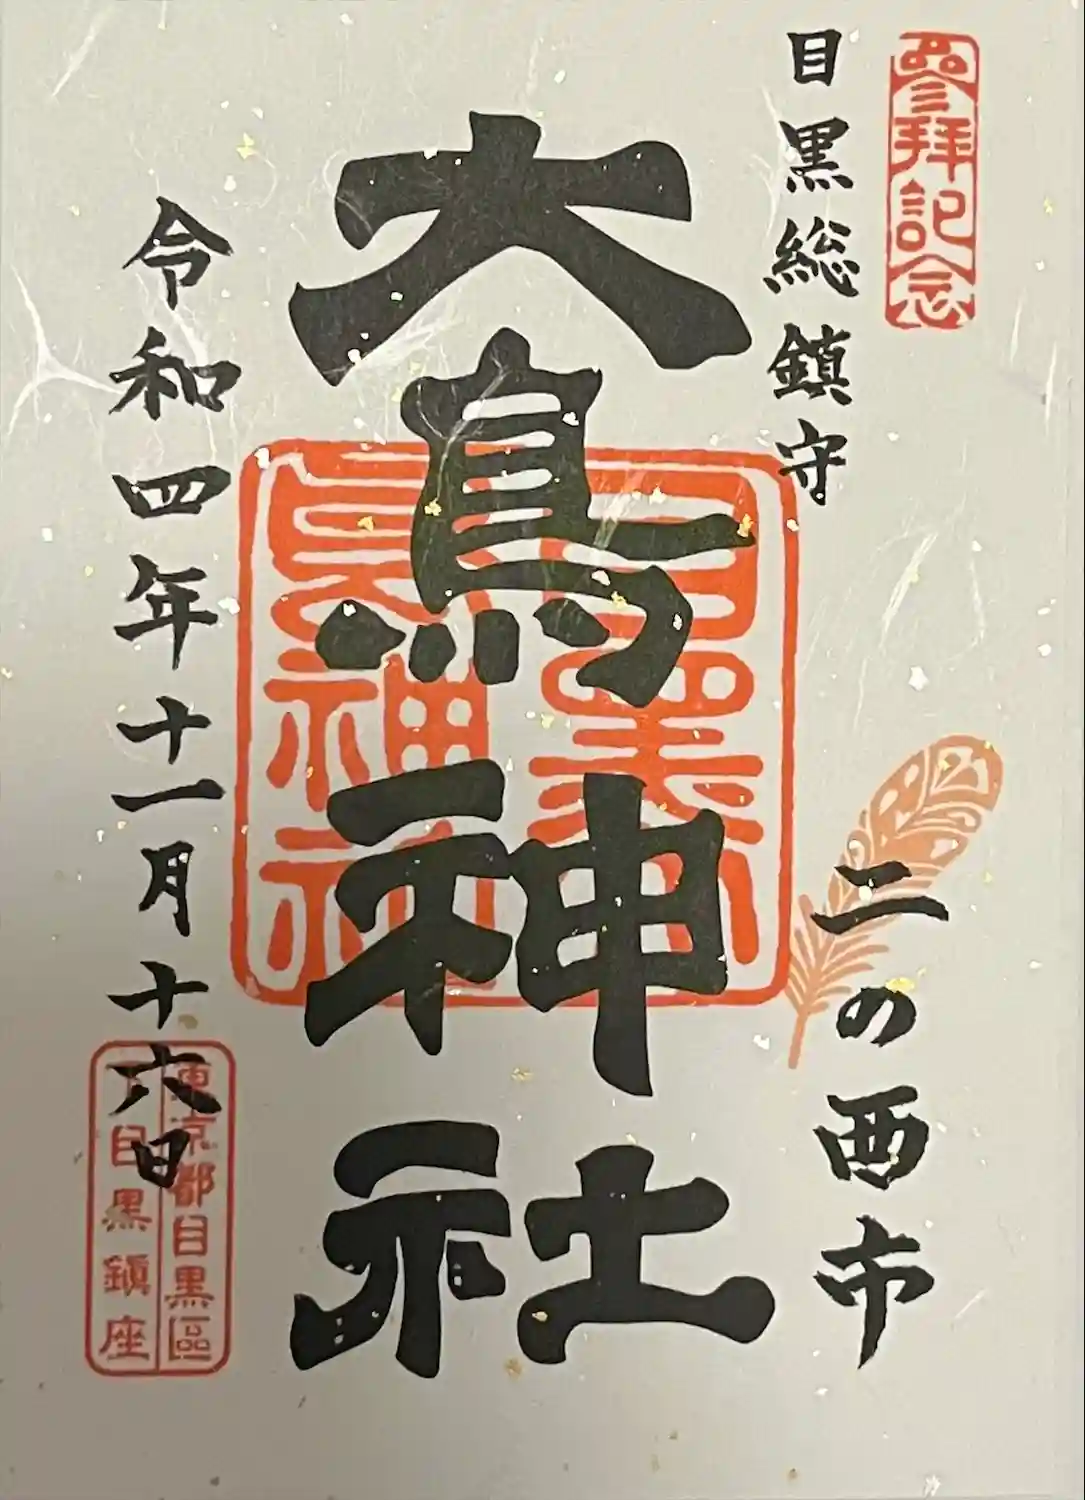 參拜記念
目黒総鎮守
二の酉市
大鳥神社
令和四年十一月十六日
東京都目黒區
下目黒鎮座